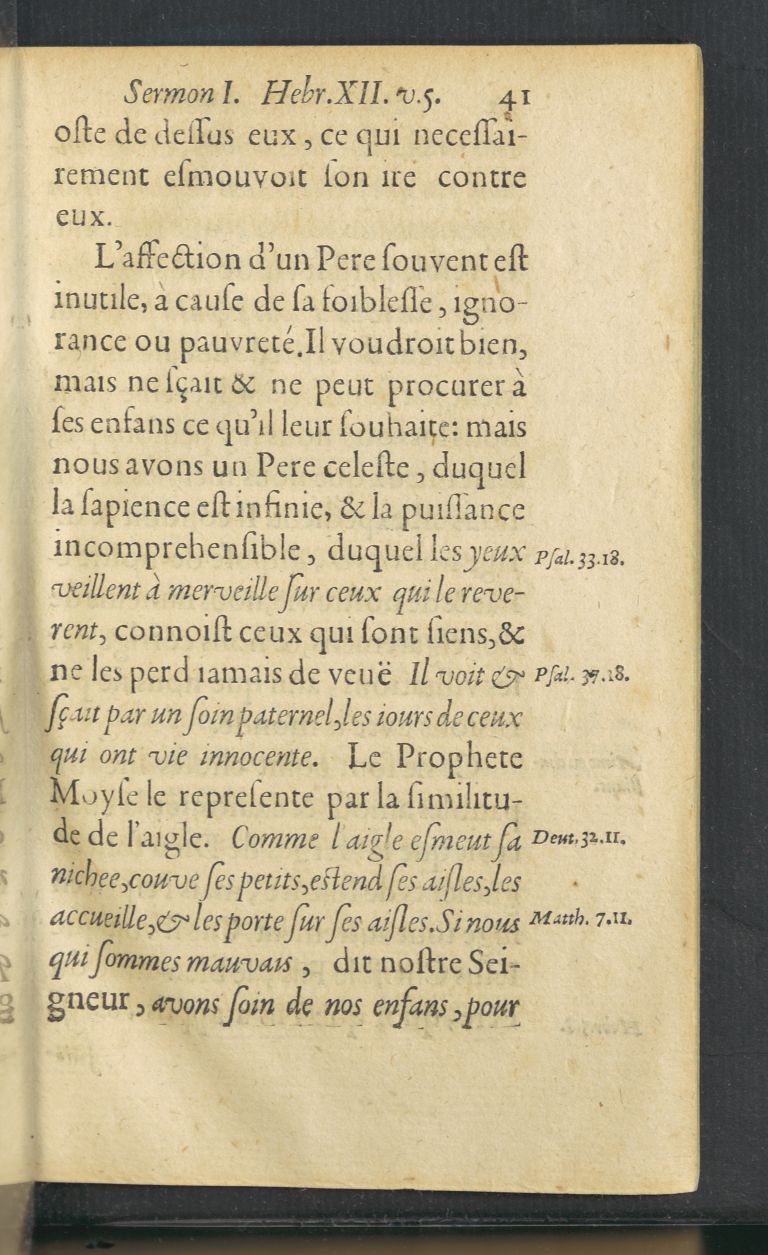 Sermon I. Hebr.XII. v.5. 41
oſte de deſſus eux, ce qui neceſſai-
rement eſmouvoit ſon ire contre
eux.
L'affection d'un Pere ſouvent eſt
inutile, à cauſe de ſa foibleſſe, igno-
rance ou pauvreté. Il voudroit bien,
mais ne ſçait & ne peut procurer à
ſes enfans ce qu'il leur ſouhaite: mais
nous avons un Pere celeſte, duquel
la ſapience eſt infinie, & la puiſſance
incomprehenſible, duquel les yeux Pſal. 33.18.
veillent à merveille ſur ceux qui le reve-
rent, connoiſt ceux qui ſont ſiens, &
ne les perd iamais de veuë Il voit & Pſal. 37.18.
ſçait par un ſoin paternel, les iours de ceux
qui ont vie innocente. Le Prophete
Moyſe le repreſente par la ſimilitu-
de de l'aigle. Comme l'aigle eſmeut ſa Deut. 32.11.
nichee, couve ſes petits, eſtend ſes aiſles, les
accueille, & les porte ſur ſes aiſles. Si nous Matth. 7.11.
qui ſommes mauvais, dit noſtre Sei-
gneur, avons ſoin de nos enfans, pour